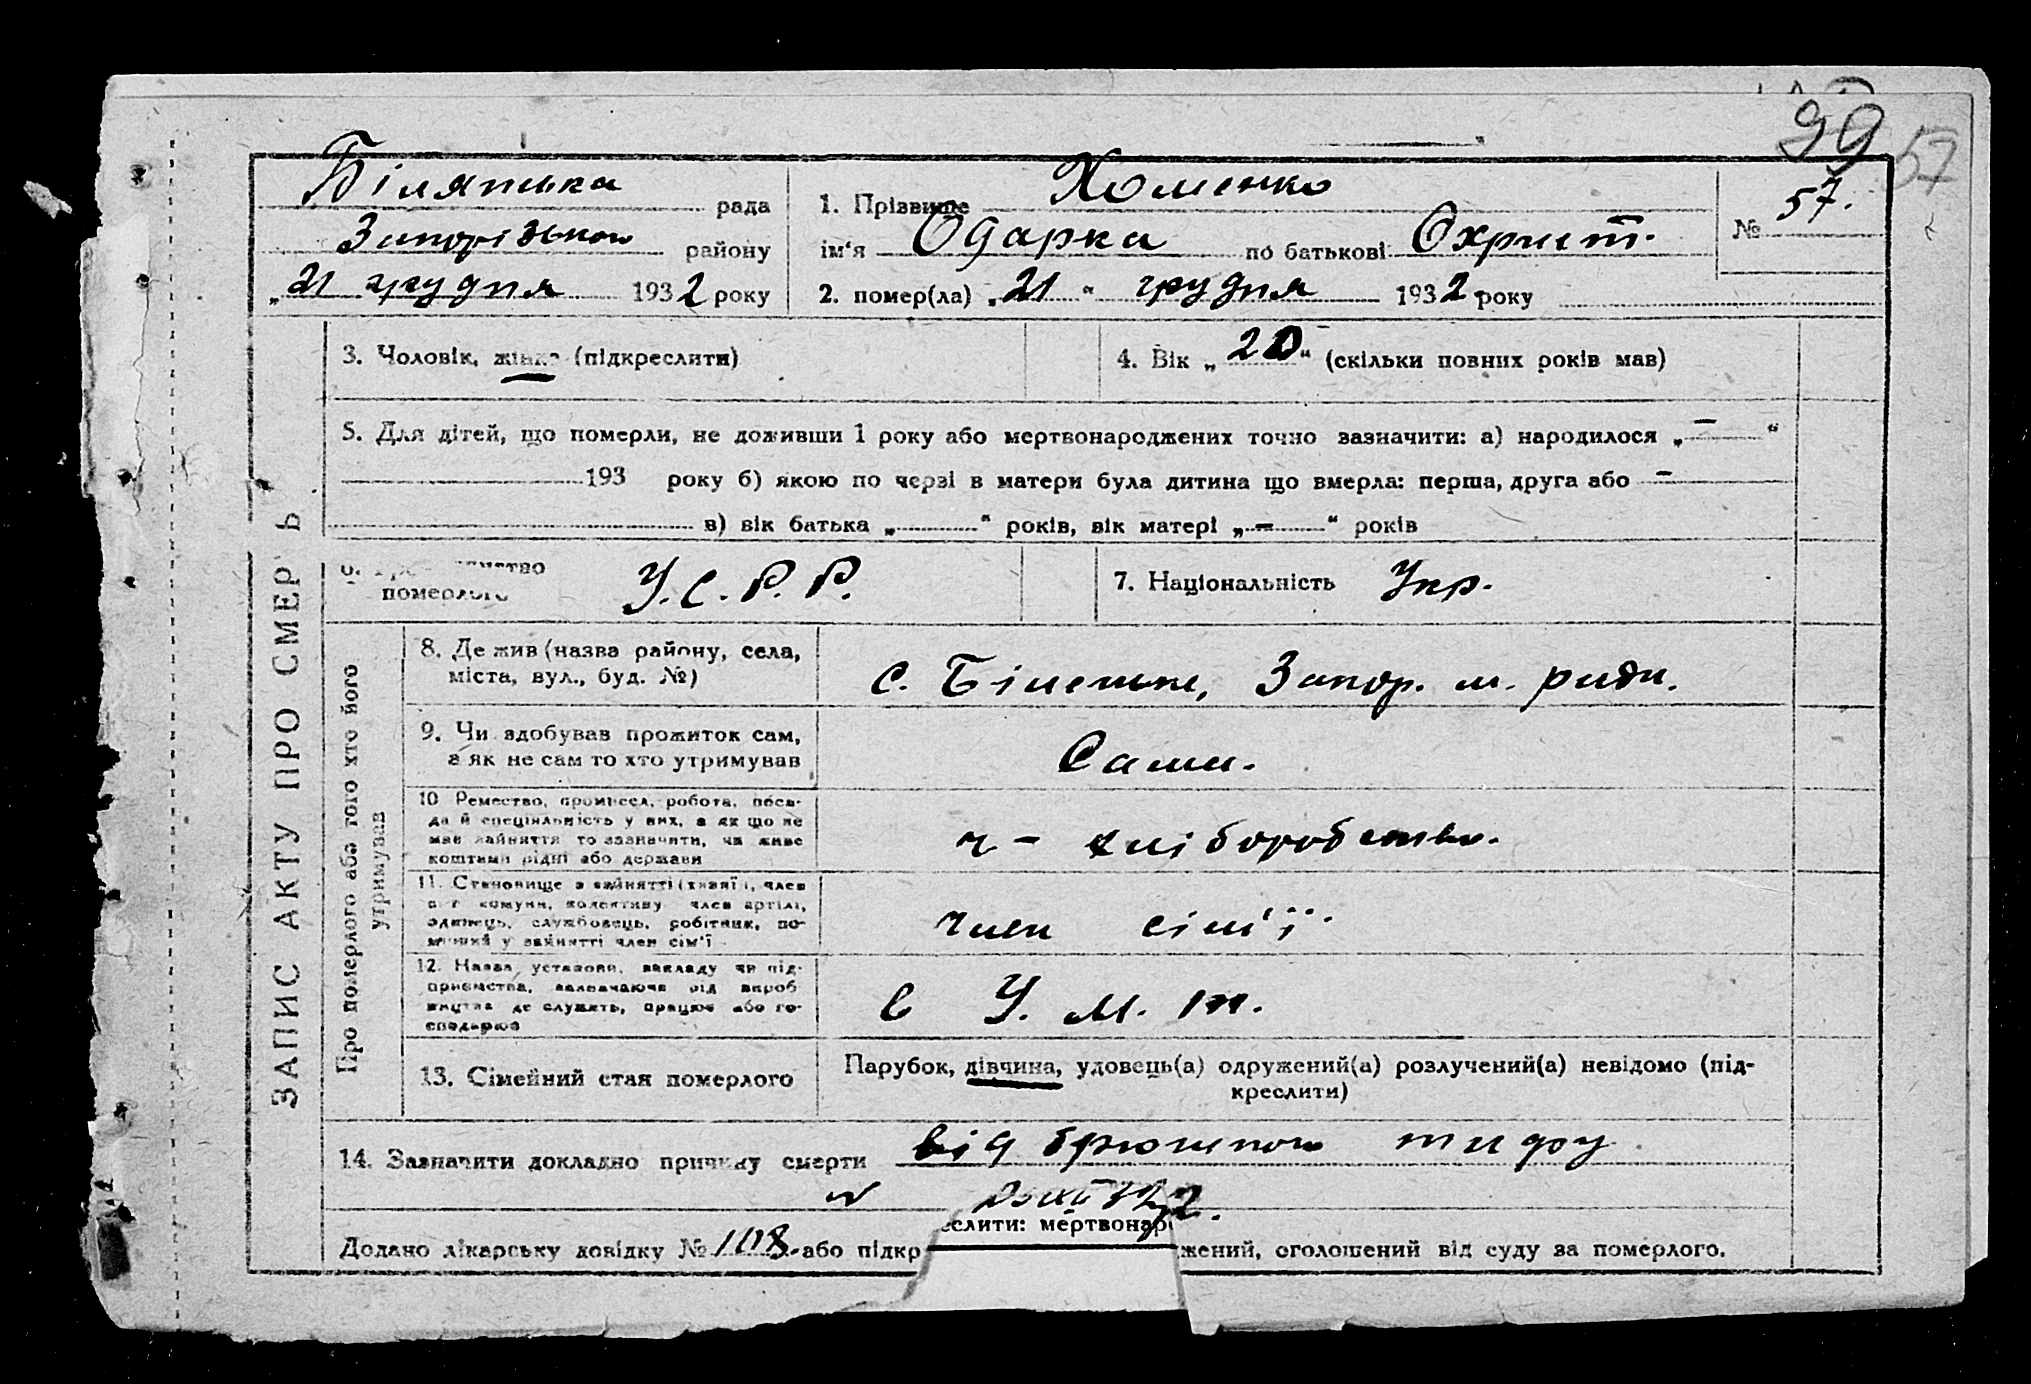 99
57
Білянська рада
Запорізького району
„21 грудня 1932 року
1. Прізвище Хоменко
ім‘я Одарка по батькові Охрим.
№ 57.
2. помер(ла) „21“ грудня 1932 року
3. Чоловік, жінка (підкреслити)
4. Вік „20“ (скільки повних років мав)
5. Для дітей, що померли, не доживши 1 року або мертвонароджених точно зазначити: а) народилося „—“
193 року б) якою по черзі в матери була дитина що вмерла: перша, друга або —
в) вік батька „ “ років, вік матері „—“ років
померлого У.С.Р.Р.
7. Національність Укр.
ЗАПИС АКТУ ПРО СМЕР Ь
Про померлого або того хто його утримував
8. Де жив (назва району, села,
міста, вул., буд. №)
с. Біленьке, Запор. м. ради.
9. Чи здобував прожиток сам,
а як не сам то хто утримував
Сама.
10 Ремество, промисел, робота, поса-
да й спеціяльність у них, а як що не
мав зайняття то зазначити, чи живе
коштами рідні або держави
хліборобство.
11. Становище в зайнятті (хазяїн, член
комуни, колективу член артілі,
одинець, службовець, робітник, по-
мічний у зайнятті член сім‘ї
член сім'ї.
12. Назва установи, закладу чи під-
приємства, залежаючи від вироб
ництва де служить, працює або го-
сподарює
в
13. Сімейний стан померлого
Парубок, дівчина, удовець(а) одружений(а) розлучений(а) невідомо (під-
креслити)
14. Зазначити докладно причину смерти від брюшного тифу
еслити: мертвонар
Додано лікарську довідку № 108. або підкр жений, оголошений від суду за померлого.